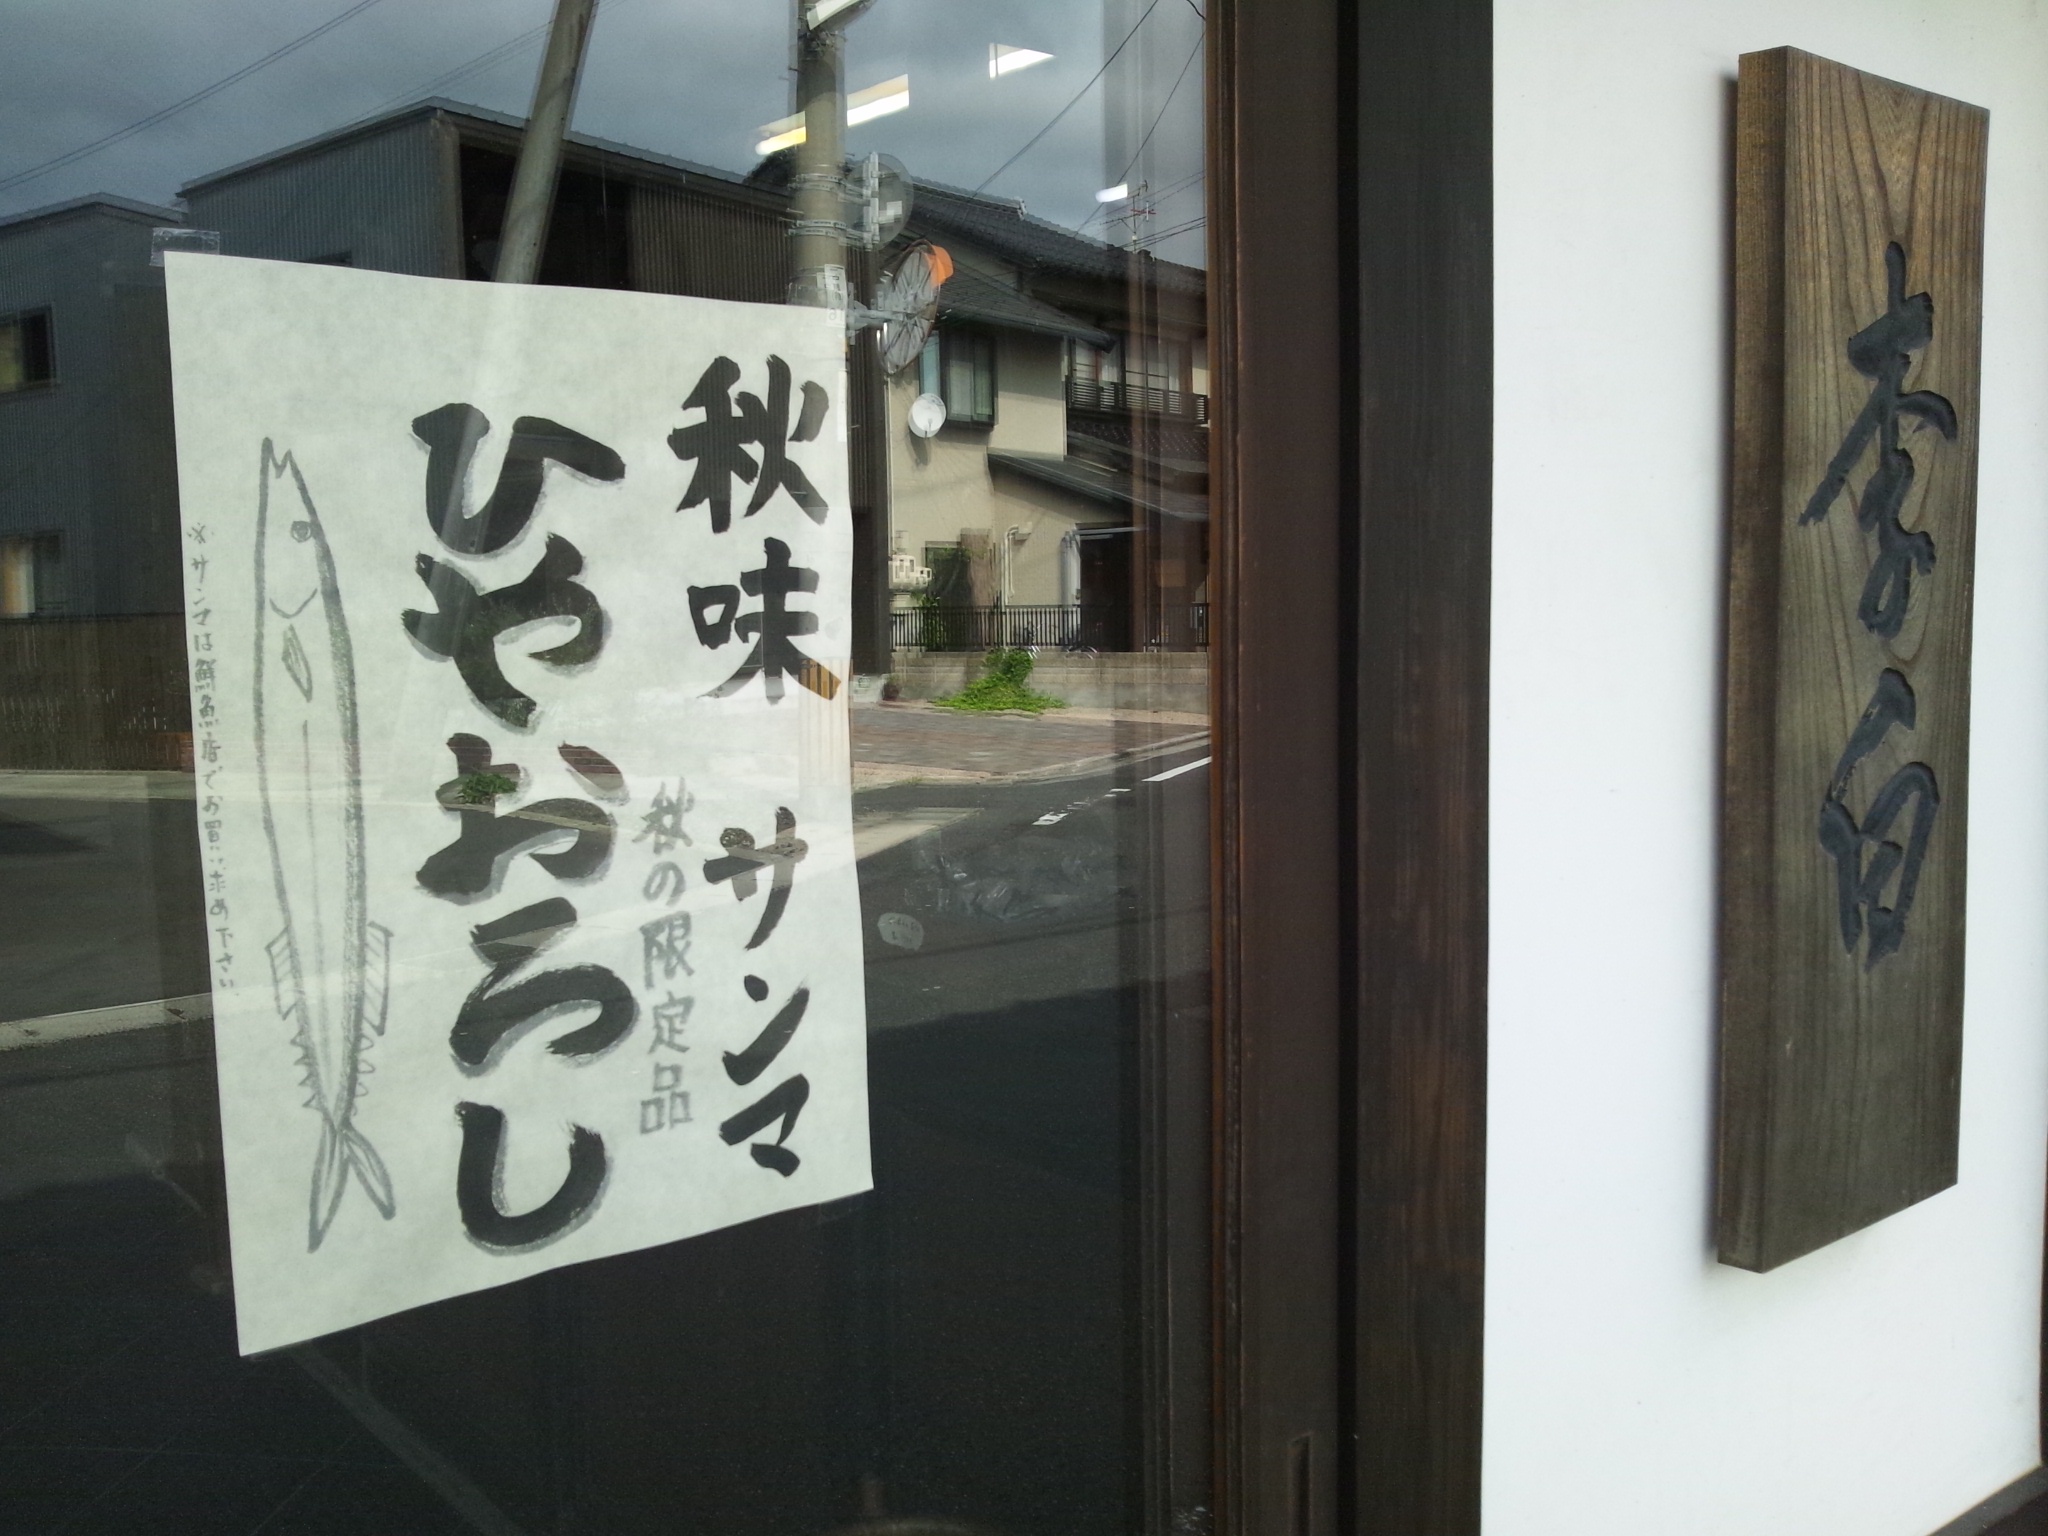 李白
秋味 サンマ
秋の限定品
ひやおろし
※サンマは鮮魚店でお買い求め下さい。